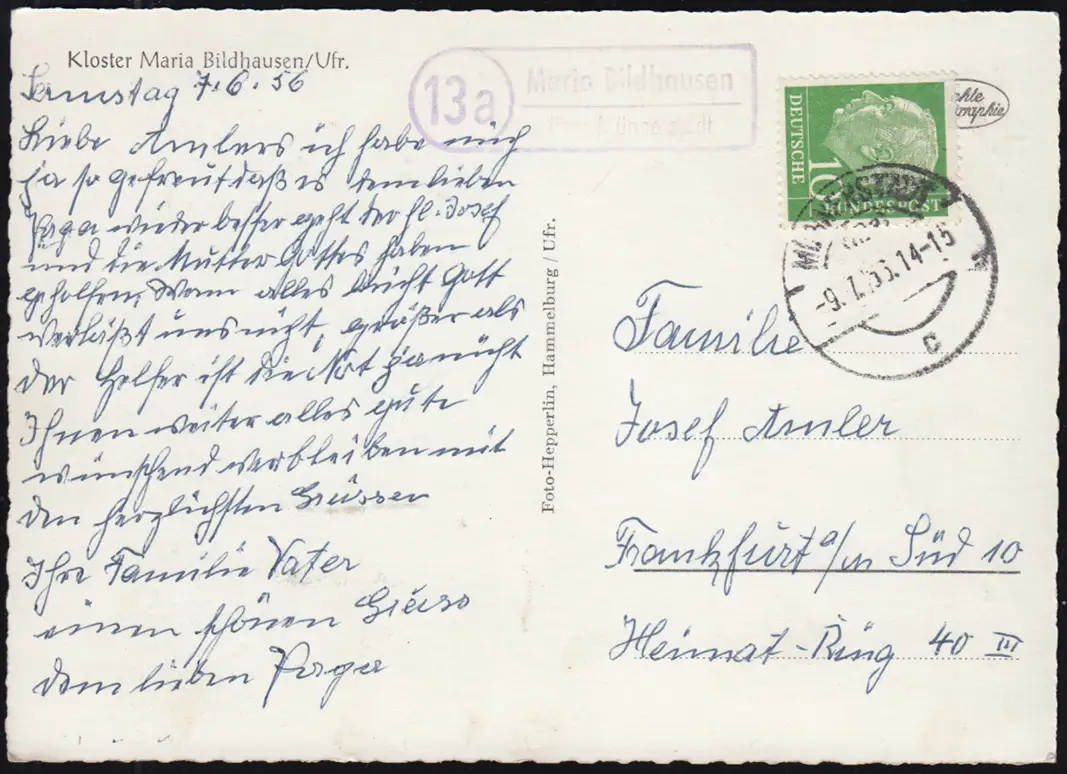 Kloster Maria Bildhausen/Ufr.
Samstag 7.6.56
Liebe Amlers ich habe mich
ja so gefreut daß es dem lieben
wieder besser geht der hl. Josef
und die Mutter Gottes haben
geholfen, Wenn alles bricht Gott
verläßt uns nicht, größer als
der Helfer ist die Not ja nicht
Ihnen weiter alles gute
wünschend verbleiben mit
den herzlichsten Grüssen
Ihre Familie Vater
einen schönen Gruss
dem lieben
13a
Maria Bildhausen
über Münnerstadt
DEUTSCHE
10
BUNDESPOST
MÜNNERSTADT
-9.7.56.14-15
c
Foto-Hepperlin, Hammelburg / Ufr.
Familie
Josef Amler
Frankfurt a/m Süd 10
Heimat-Ring 40 III